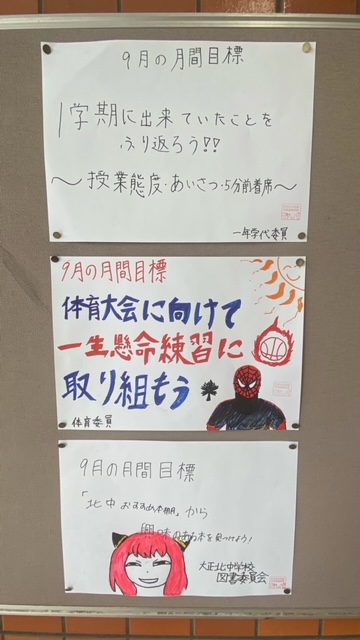 9月の月間目標
1学期に出来ていたことを
ふり返ろう!!
〜授業態度・あいさつ・5分前着席〜
一年学代委員
9月の月間目標
体育大会に向けて
一生懸命練習に
取り組もう
体育委員
9月の月間目標
「北中おすすめ本棚」から
興味のある本を見つけよう!
大正北中学校
図書委員会